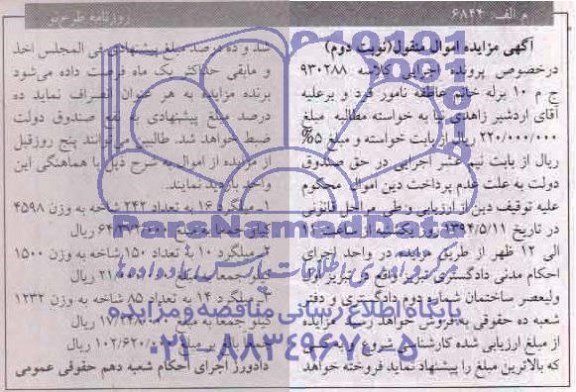 م الف: ۶۸۴۴
روزنامه طرح نو
آگهی مزایده اموال منقول(نوبت دوم)
درخصوص پرونده اجرایی کلاسه ۹۳۰۲۸۸
ج م ۱۰ برله خانم عاطفه نامور فرد و برعلیه
آقای اردشیر زاهدی نیا به خواسته مطالبه مبلغ
۲۲۰/۰۰۰/۰۰۰ ریال از بابت خواسته و مبلغ ۵%
ریال از بابت نیم عشر اجرایی در حق صندوق
دولت به علت عدم پرداخت دین اموال محکوم
علیه توقیف دین از ارزیابی و طی مراحل قانونی
در تاریخ ۱۳۹۴/۵/۱۱ یکشنبه از ساعت
الی ۱۲ ظهر از طریق مزایده در واحد اجرای
احکام مدنی دادگستری تبریز واقع در تبریز
ولیعصر ساختمان شماره دوم دادگستری و دفتر
شعبه ده حقوقی به فروش خواهد رسید مزایده
از مبلغ ارزیابی شده کارشناسی شروع و
که بالاترین مبلغ را پیشنهاد نماید فروخته خواهد
شد و ده درصد مبلغ پیشنهادی فی المجلس اخذ
و مابقی حداکثر یک ماه فرصت داده می‌شود
برنده مزایده به هر عنوان انصراف نماید ده
درصد مبلغ پیشنهادی به نفع صندوق دولت
ضبط خواهد شد. طالبین می‌توانند پنج روز قبل
از مزایده از اموال به شرح ذیل با هماهنگی این
واحد بازدید نمایند.
۱- میلگرد ۱۶ به تعداد ۲۴۲ شاخه به وزن ۴۵۹۸
کیلو جمعا به مبلغ
۲- میلگرد ۱۰ به تعداد ۱۵۰ شاخه به وزن ۱۵۰۰
کیلو جمعا به مبلغ
۳- میلگرد ۱۴ به تعداد ۸۵ شاخه به وزن ۱۲۳۲
کیلو جمعا به مبلغ
دادورز اجرای احکام شعبه دهم حقوقی عمومی
ParsNamadData
پایگاه اطلاع رسانی مناقصه و مزایده
۰۲۱-۸۸۳۴۹۶۷۰-۵